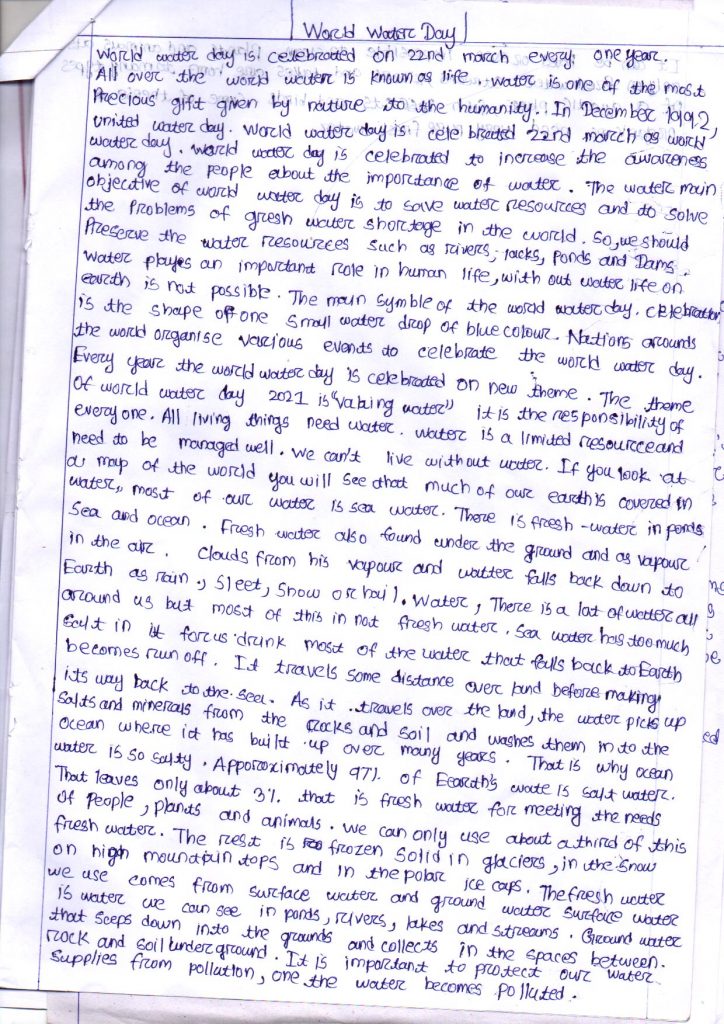 World Water Day
World water day is celebrated on 22nd march every one year.
All over the world water is known as life. water is one of the most
Precious gift given by nature to the humanity. In December 1992,
united water day. World water day is celebrated 22nd march as world
water day. World water day is celebrated to increase the awareness
among the people about the importance of water. The water main
objective of world water day is to save water resources and to solve
the Problems of gresh water shortage in the world. So, we should
Preserve the water resources such as rivers, lacks, Ponds and Dams.
Water playes an important role in human life, with out water life on
earth is not possible. The main symble of the world water day. celebration
is the shape off one small water drop of blue colour. Nations arounds
the world organise various events to celebrate the world water day.
Every year the world water day is celebrated on new theme. The theme
Of world water day 2021 is "valuing water" it is the responsibility of
every one. All living things need water. Water is a limited resource and
need to be managed well. We can't live without water. If you look at
a map of the world you will see that much of our earth is covered in
water, most of our water is sea water. There is fresh-water in ponds
Sea and ocean. Fresh water also found under the ground and as vapour
in the air. Clouds from his vapour and watter falls back down to
Earth as rain, sleet, snow or hail. Water, There is a lot of watter all
around us but most of this in not fresh water. Sea water has too much
salt in it for us drink most of the water that falls back to Earth
becomes run off. It travels some distance over land before making
its way back to the sea. As it travels over the land, the water picks up
salts and minerals from the rocks and soil and washes them in to the
ocean where it has built up over many years. That is why ocean
water is so salty. Approximately 97% of Eearth's wate is salt water.
That leaves only about 3% that is fresh water for meeting the needs
of People, plants and animals. We can only use about a third of this
fresh water. The rest is frozen solid in glaciers, in the snow
on high mountain tops and in the polar ice caps. The fresh water
we use comes from surface water and ground water surface water
is water we can see in ponds, rivers, lakes and streams. Ground water
that seeps down into the grounds and collects in the spaces between.
rock and soil underground. It is important to protect our water
Supplies from pollution, one the water becomes polluted.